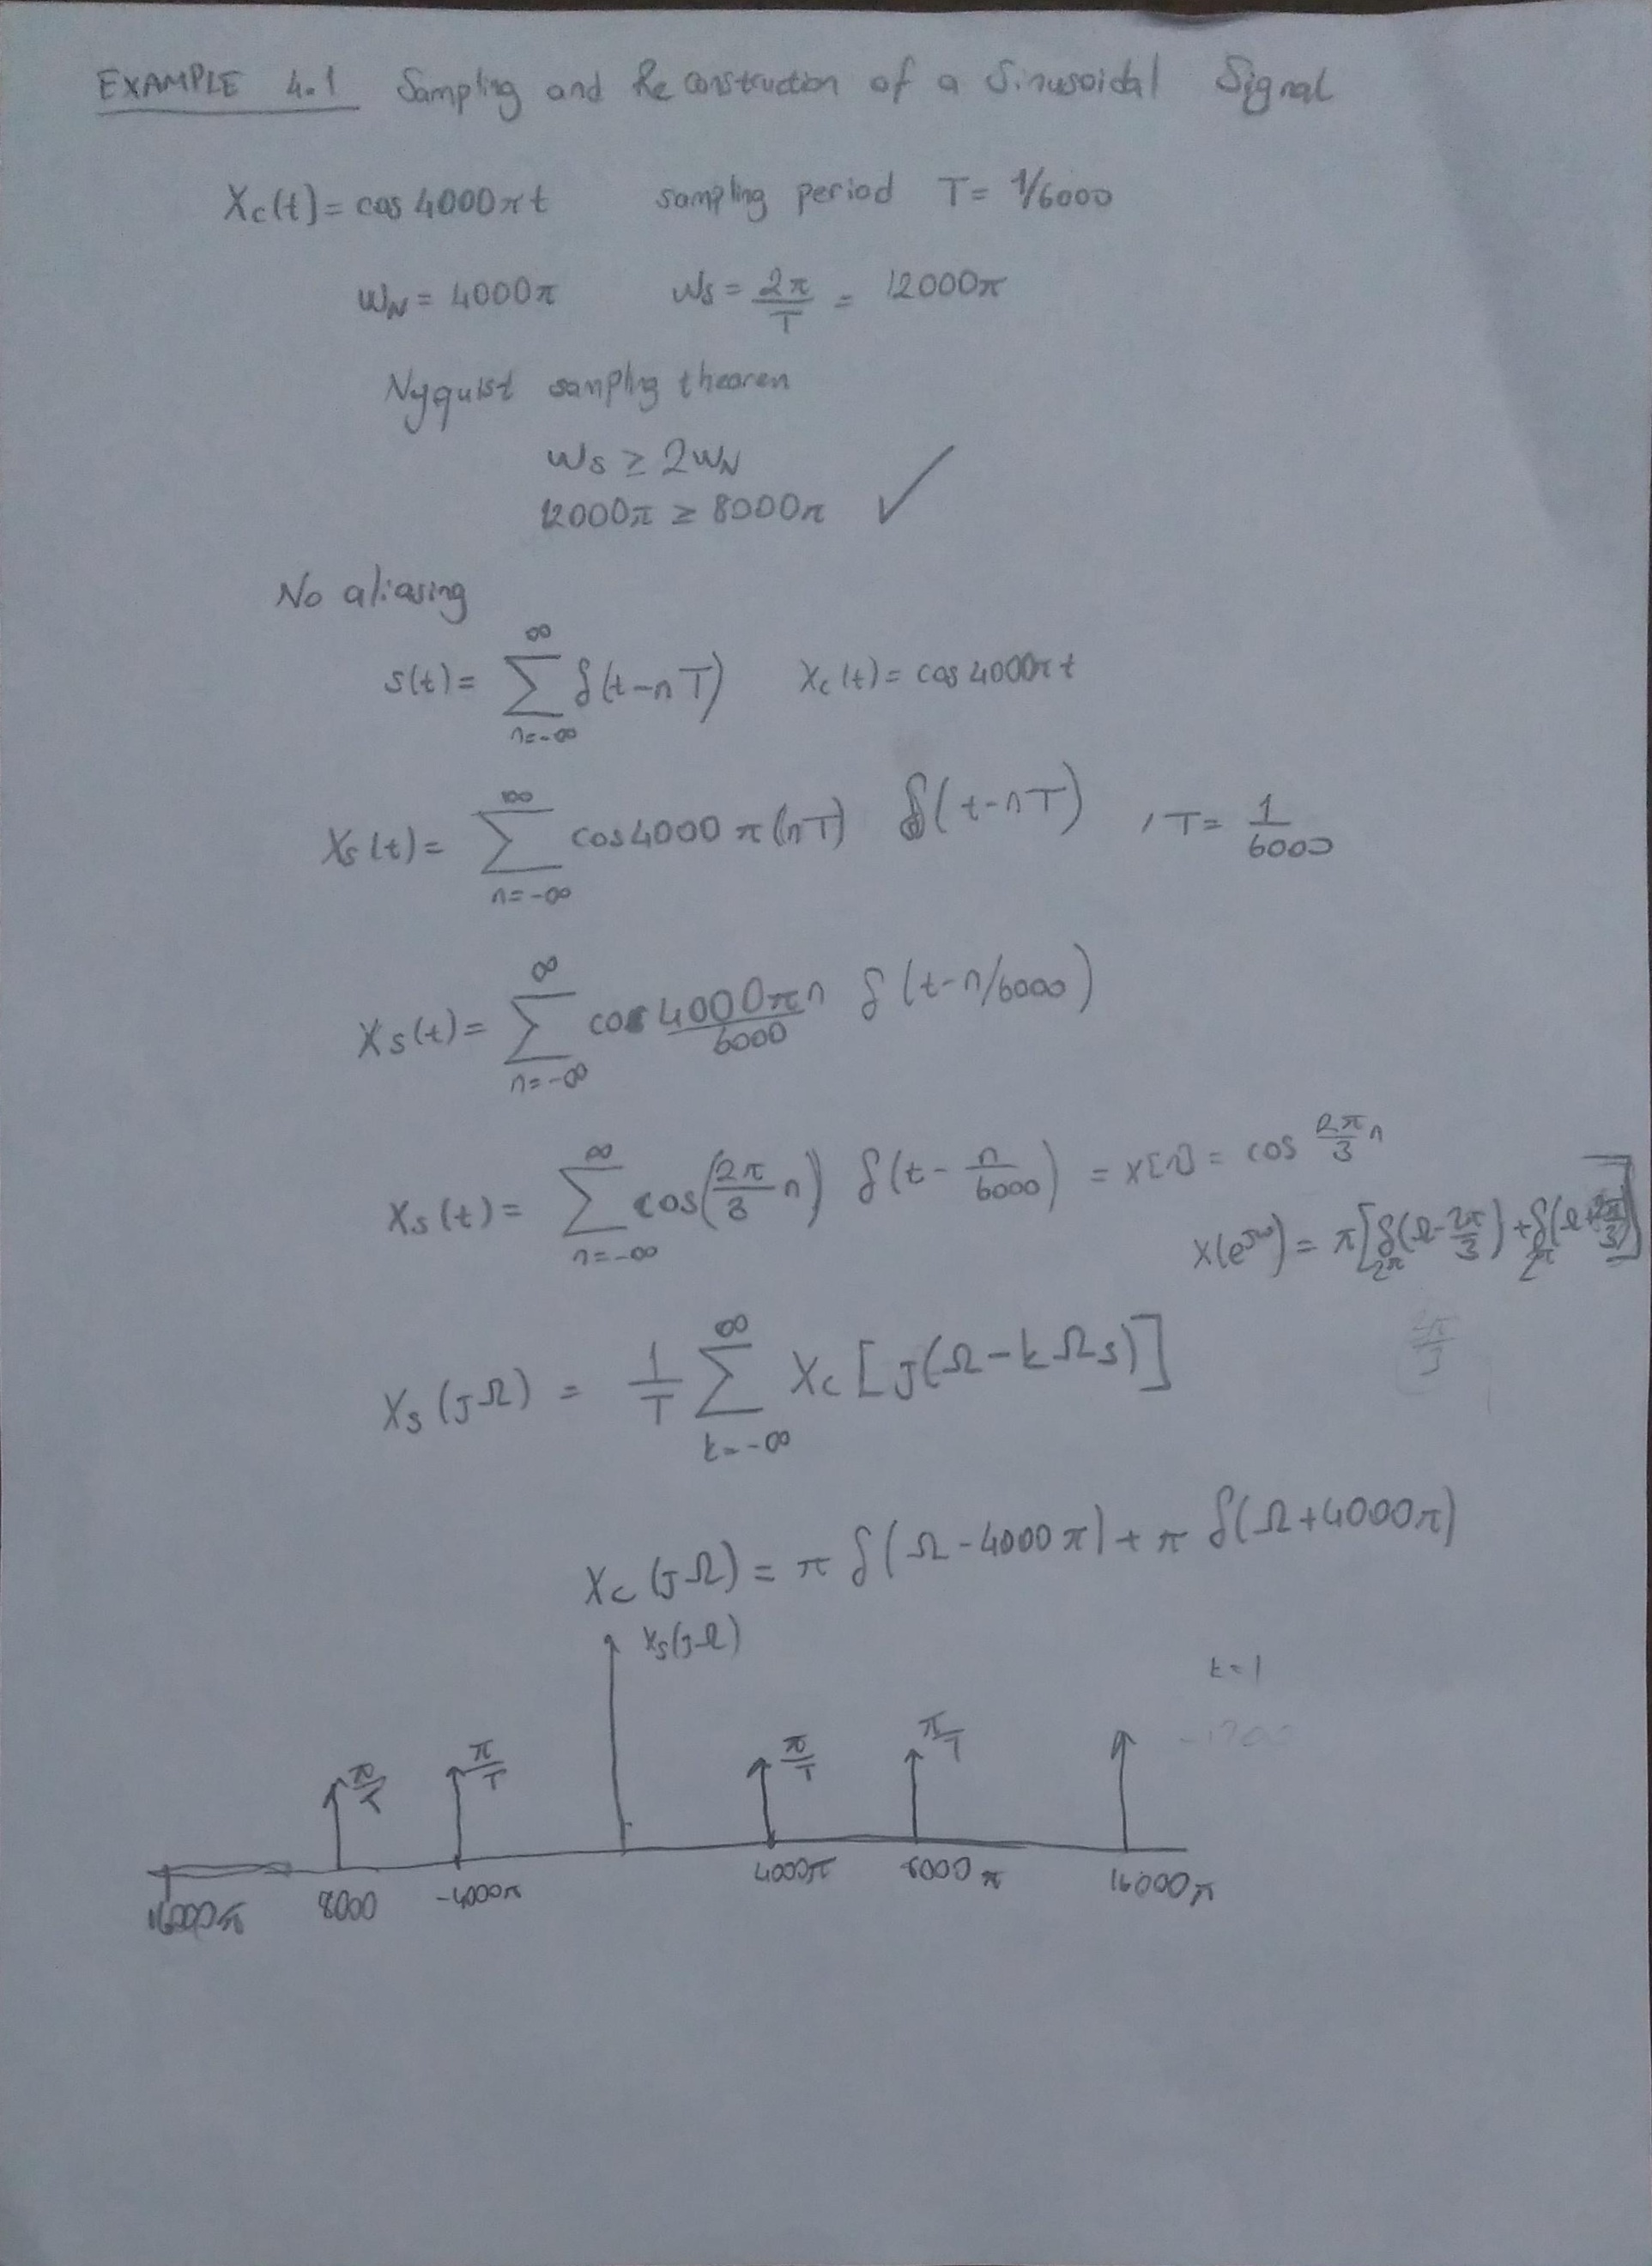 EXAMPLE 4.1 Sampling and Reconstruction of a Sinusoidal Signal
Xc(t) = cos 4000πt sampling period T = 1/6000
WN = 4000π Ws = 2π/T = 12000π
Nyquist sampling theorem
Ws ≥ 2WN
12000π ≥ 8000π ✓
No aliasing
s(t) = ∑_{n=-∞}^{∞} δ(t-nT) Xc(t) = cos 4000πt
Xs(t) = ∑_{n=-∞}^{∞} cos 4000π(nT) δ(t-nT) , T = 1/6000
Xs(t) = ∑_{n=-∞}^{∞} cos 4000πn/6000 δ(t-n/6000)
Xs(t) = ∑_{n=-∞}^{∞} cos(2π/3 n) δ(t - n/6000) = x[n] = cos 2π/3 n
X(e^{jω}) = π[δ_{2π}(Ω-2π/3) + δ_{2π}(Ω+2π/3)]
2π/3
Xs(jΩ) = 1/T ∑_{k=-∞}^{∞} Xc[j(Ω-kΩs)]
Xc(jΩ) = π δ(Ω-4000π) + π δ(Ω+4000π)
Xs(jΩ)
k=1
π/T π/T π/T π/T
16000π 8000 -4000π 4000π 8000π 16000π